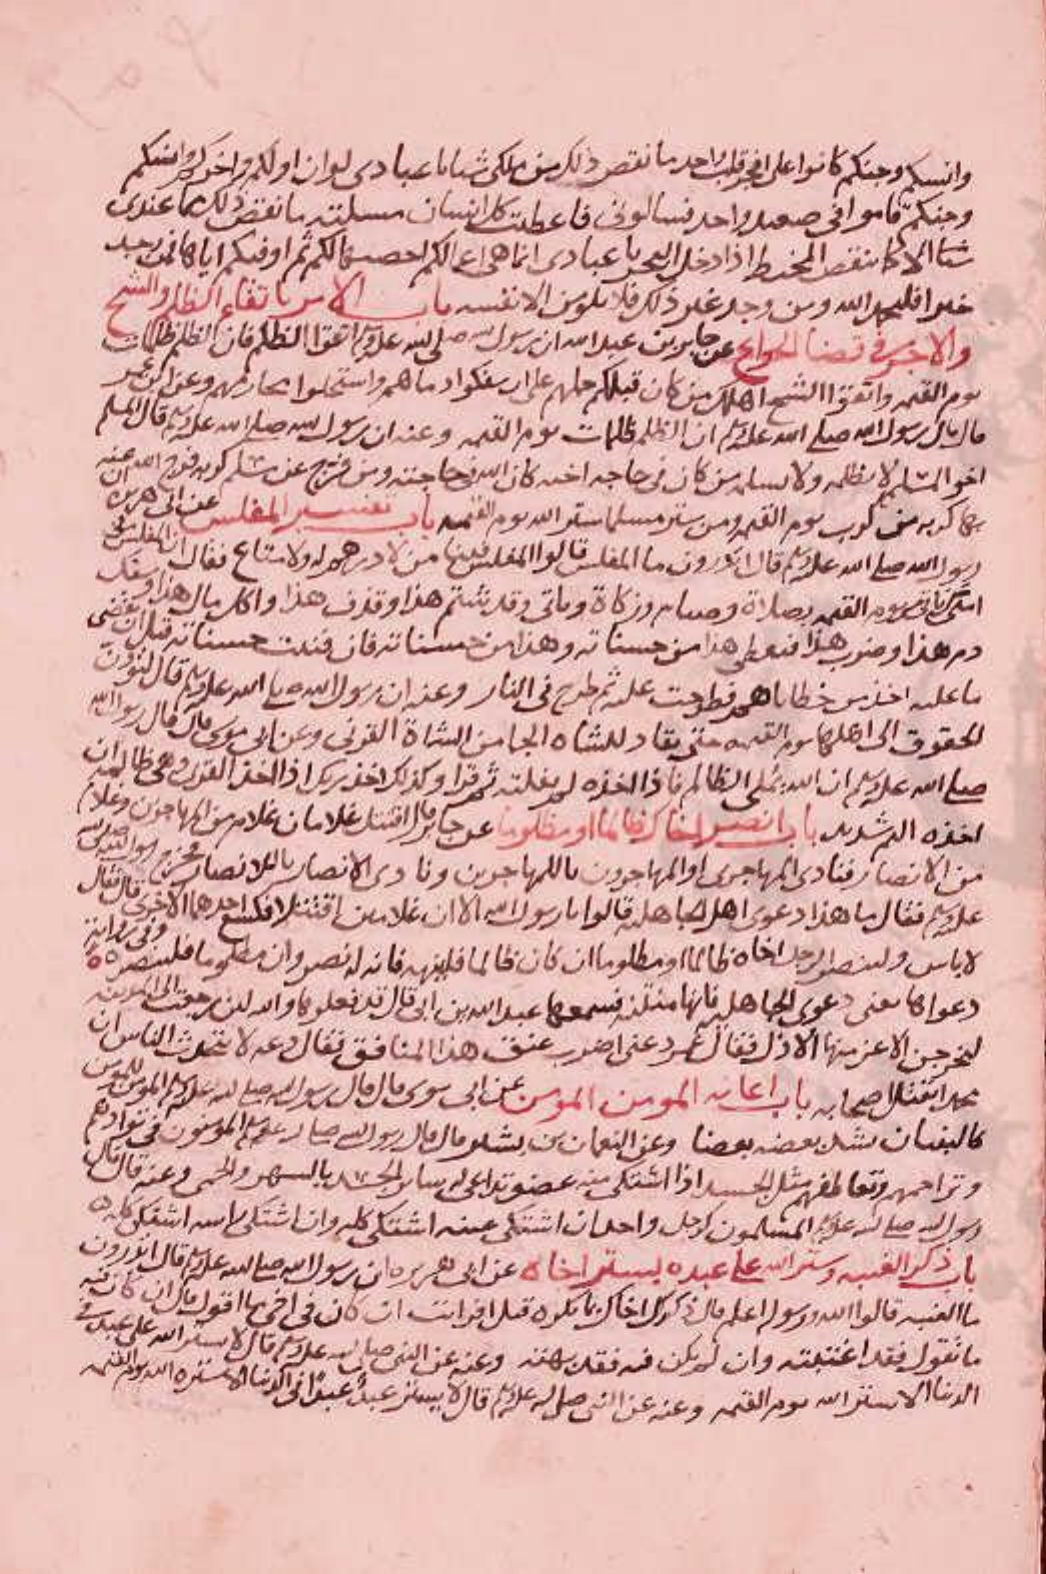 وانسكم وجنكم كانوا على افجر قلب واحد ما نقص ذلك من ملكي شيئا يا عبادي لو ان اولكم واخركم وانسكم
وجنكم قاموا في صعيد واحد فسالوني فاعطيت كل انسان مسئلته ما نقص ذلك مما عندي
شيئا الا كما ينقص المخيط اذا دخل البحر يا عبادي انما هي اعمالكم احصيها لكم ثم اوفيكم اياها فمن وجد
خيرا فليحمد الله ومن وجد غير ذلك فلا يلومن الا نفسه باب الامر باتقاء الظلم والشح
والاجر في قضا الحوايج عن جابر بن عبد الله ان رسول الله صلى الله عليه وسلم اتقوا الظلم فان الظلم ظلمات
يوم القيمه واتقوا الشح اهلك من كان قبلكم حملهم على ان سفكوا دماهم واستحلوا محارمهم وعن ابن عمر
قال قال رسول الله صلى الله عليه وسلم ان الظلم ظلمات يوم القيمه وعنه ان رسول الله صلى الله عليه وسلم قال المسلم
اخو المسلم لا يظلمه ولا يسلمه من كان في حاجه اخيه كان الله في حاجته ومن فرج عن مسلم كربه فرج الله عنه
بها كربه من كرب يوم القيمه ومن ستر مسلما ستره الله يوم القيمه باب تفسير المفلس عن ابي هريره ان
رسول الله صلى الله عليه وسلم قال اتدرون ما المفلس قالوا المفلس فينا من لا درهم له ولا متاع فقال ان المفلس من
امتي ياتي يوم القيمه بصلاة وصيام وزكاة وياتي وقد شتم هذا وقذف هذا واكل مال هذا وسفك
دم هذا وضرب هذا فيعطى هذا من حسناته وهذا من حسناته فان فنيت حسناته قبل ان يقضي
ما عليه اخذ من خطاياهم فطرحت عليه ثم طرح في النار وعنه ان رسول الله صلى الله عليه وسلم قال لتودن
الحقوق الى اهلها يوم القيمه حتى يقاد للشاه الجما من الشاة القرني وعن ابي موسى قال قال رسول الله
صلى الله عليه وسلم ان الله يملي الظالم فاذا اخذه لم يفلته ثم قرا وكذلك اخذ ربك اذا اخذ القرى وهي ظالمه ان
اخذه اليم شديد باب انصر اخاك ظالما او مظلوما عن جابر قال اقتتل غلامان غلام من المهاجرين وغلام
من الانصار فنادى المهاجري او المهاجرون يا للمهاجرين ونادى الانصار يا للانصار فخرج رسول الله صلى الله
عليه وسلم فقال ما هذا دعوى اهل الجاهليه قالوا يا رسول الله الا ان غلامين اقتتلا فكسع احدهما الاخر قال فقال
لا باس ولينصر الرجل اخاه ظالما او مظلوما ان كان ظالما فلينهه فانه له نصر وان مظلوما فلينصره وفي روايه
دعوها يعني دعوى الجاهليه فانها منتنه فسمعها عبد الله بن ابي قال قد فعلوها والله لئن رجعنا الى المدينه
ليخرجن الاعز منها الاذل فقال عمر دعني اضرب عنق هذا المنافق فقال دعه لا يتحدث الناس ان
محمدا يقتل اصحابه باب اعانه المومن المومن عن ابي موسى قال قال رسول الله صلى الله عليه وسلم المومن للمومن
كالبنيان يشد بعضه بعضا وعن النعمان بن بشير قال قال رسول الله صلى الله عليه وسلم المؤمنون في توادهم
وتراحمهم وتعاطفهم مثل الجسد اذا اشتكى منه عضو تداعى له ساير الجسد بالسهر والحمى وعنه قال قال
رسول الله صلى الله عليه وسلم المسلمون كرجل واحد ان اشتكى عينه اشتكى كله وان اشتكى راسه اشتكى كله
باب ذكر الغيبه وستر الله على عبده يستر اخاه عن ابي هريره ان رسول الله صلى الله عليه وسلم قال اتدرون
ما الغيبه قالوا الله ورسوله اعلم قال ذكرك اخاك بما يكره قيل افرايت ان كان في اخي ما اقول قال ان كان فيه
ما تقول فقد اغتبته وان لم يكن فيه فقد بهته وعنه عن النبي صلى الله عليه وسلم قال لا يستر الله على عبد في
الدنيا الا ستر الله يوم القيمه وعنه عن النبي صلى الله عليه وسلم قال لا يستر عبد عبدا في الدنيا الا ستره الله يوم القيمه